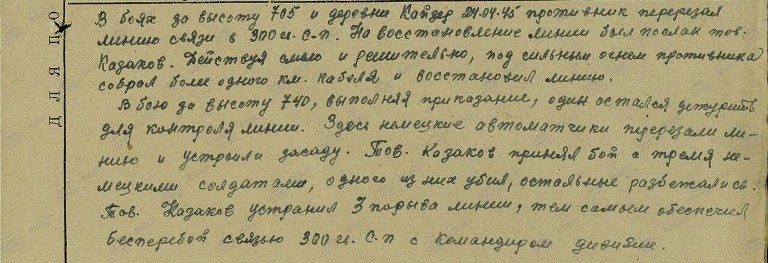 В боях за высоту 705 и деревни Кайзер 24.04.45 противник перерезал
линию связи в 300 гв. с.п. На восстановление линии был послан тов.
Казаков. Действуя смело и решительно, под сильным огнем противника
собрал более одного км. кабеля и восстановил линию.
В бою за высоту 740, выполняя приказание, один остался дежурить
для контроля линии. Здесь немецкие автоматчики перерезали ли-
нию и устроили засаду. Тов. Казаков принял бой с тремя не-
мецкими солдатами, одного из них убил, остальные разбежались.
Тов. Казаков устранил 3 порыва линии, тем самым обеспечил
бесперебой связью 300 гв. с.п с командиром дивизии.
ДЛЯ ПО